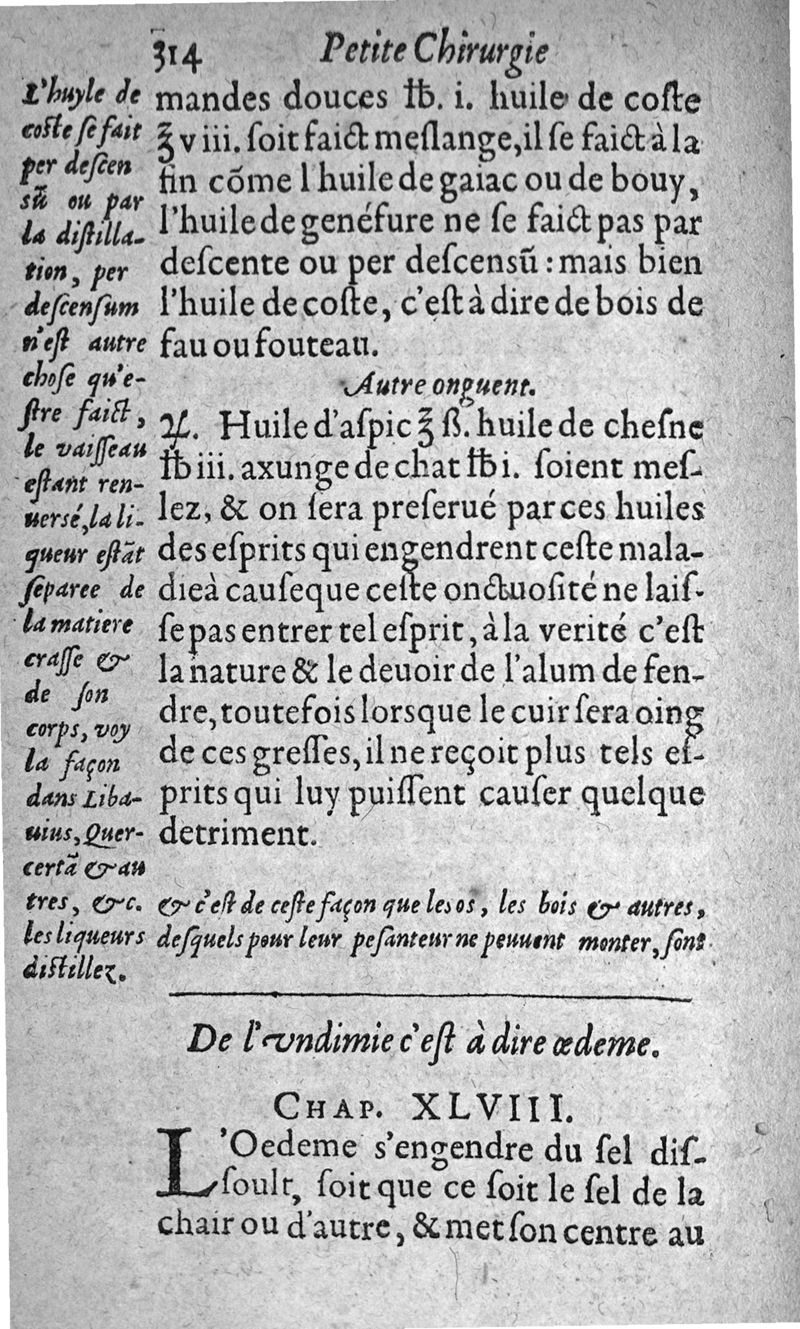 314 Petite Chirurgie
mandes douces ℔. i. huile de coſte
℥ v iii. ſoit faict meſlange, il ſe faict à la
fin cõme l huile de gaiac ou de bouy,
l'huile de genéſure ne ſe faict pas par
deſcente ou per deſcensũ : mais bien
l'huile de coſte, c'eſt à dire de bois de
fau ou fouteau.
Autre onguent.
♃. Huile d'aſpic ℥ ß. huile de cheſne
℔ iii. axunge de chat ℔ i. ſoient meſ-
lez, & on ſera preſerué par ces huiles
des eſprits qui engendrent ceſte mala-
dieà cauſeque ceſte onctuoſité ne laiſ-
ſe pas entrer tel eſprit, à la verité c'eſt
la nature & le deuoir de l'alum de fen-
dre, toutefois lorsque le cuir ſera oing
de ces greſſes, il ne reçoit plus tels eſ-
prits qui luy puiſſent cauſer quelque
detriment.
L'huyle de
coste ſe fait
per deſcen
sũ ou par
la diſtilla-
tion, per
deſcenſum
n'eſt autre
choſe qu'e-
ſtre faict,
le vaiſſeau
eſtant ren-
uersé, la li-
queur eſtãt
ſeparee de
la matiere
craſſe &
de ſon
corps, voy
la façon
dans Liba-
uius, Quer-
certã & au
tres, &c.
les liqueurs
diſtillez.
& c'eſt de ceſte façon que les os, les bois & autres,
deſquels pour leur peſanteur ne peuuent monter, ſont
De l'vndimie c'eſt à dire œdeme.
CHAP. XLVIII.
L'Oedeme s'engendre du ſel diſ-
ſoult, ſoit que ce ſoit le ſel de la
chair ou d'autre, & met ſon centre au